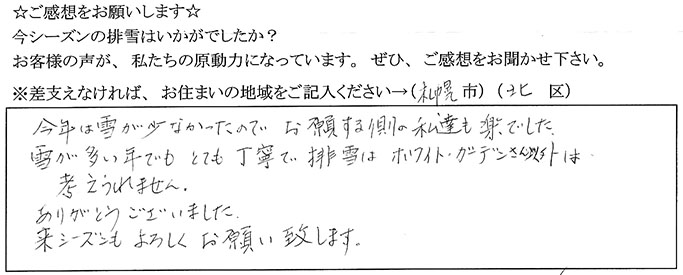 ☆ご感想をお願いします☆
今シーズンの排雪はいかがでしたか？
お客様の声が、私たちの原動力になっています。ぜひ、ご感想をお聞かせ下さい。
※差支えなければ、お住まいの地域をご記入ください→（札幌市）（北　区）
今年は雪が少なかったので お願する側の私達も楽でした.
雪が多い年でも とても 丁寧で 排雪は ホワイト・ガーデンさん以外は
考えられません.
ありがとうございました.
来シーズンも よろしく お願い致します。